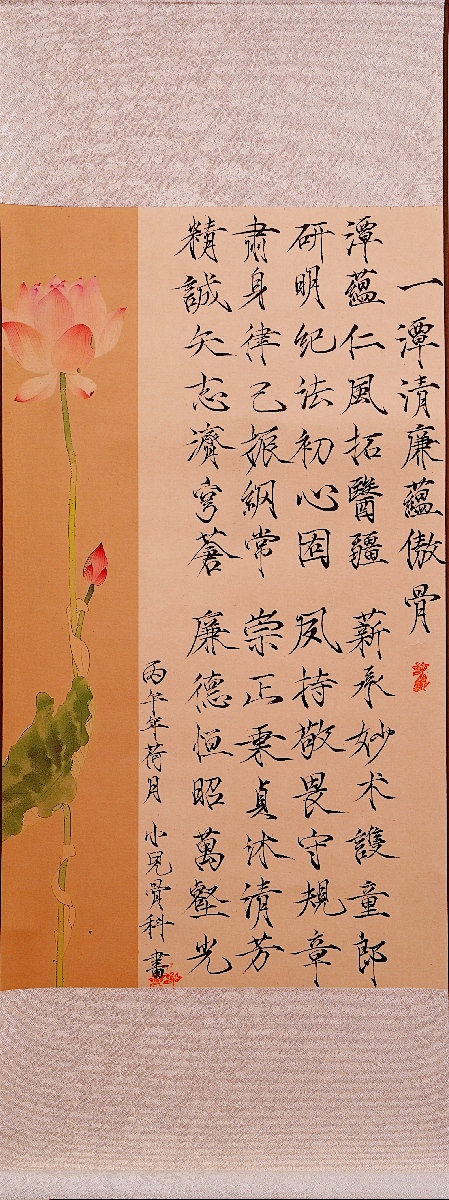 一潭清廉蘊傲骨
潭蘊仁風拓醫疆 薪承妙术護童郎
研明紀法初心固 夙持敬畏守規章
肅身律己振綱常 崇正秉貞沐清芳
精誠矢志濟穹蒼 廉德恒昭萬壑光
丙午年荷月 小兒骨科 書